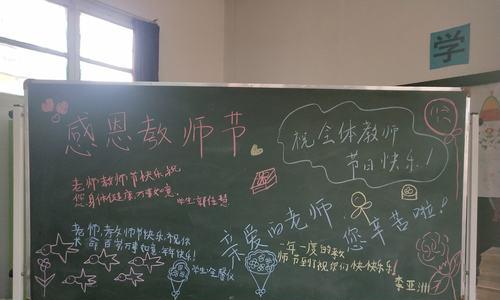 学
感恩教师节
祝全体教师
节日快乐！
老师教师节快乐,祝
您身体健康,万事如意.
学生:郭佳慧
亲爱的老师,
您辛苦啦！
老师,
师节快乐,祝你
学生:
一年一度的教
师节到了祝你们快快乐乐！
李亚